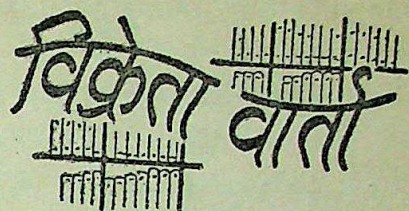 विक्रेता
वार्ता